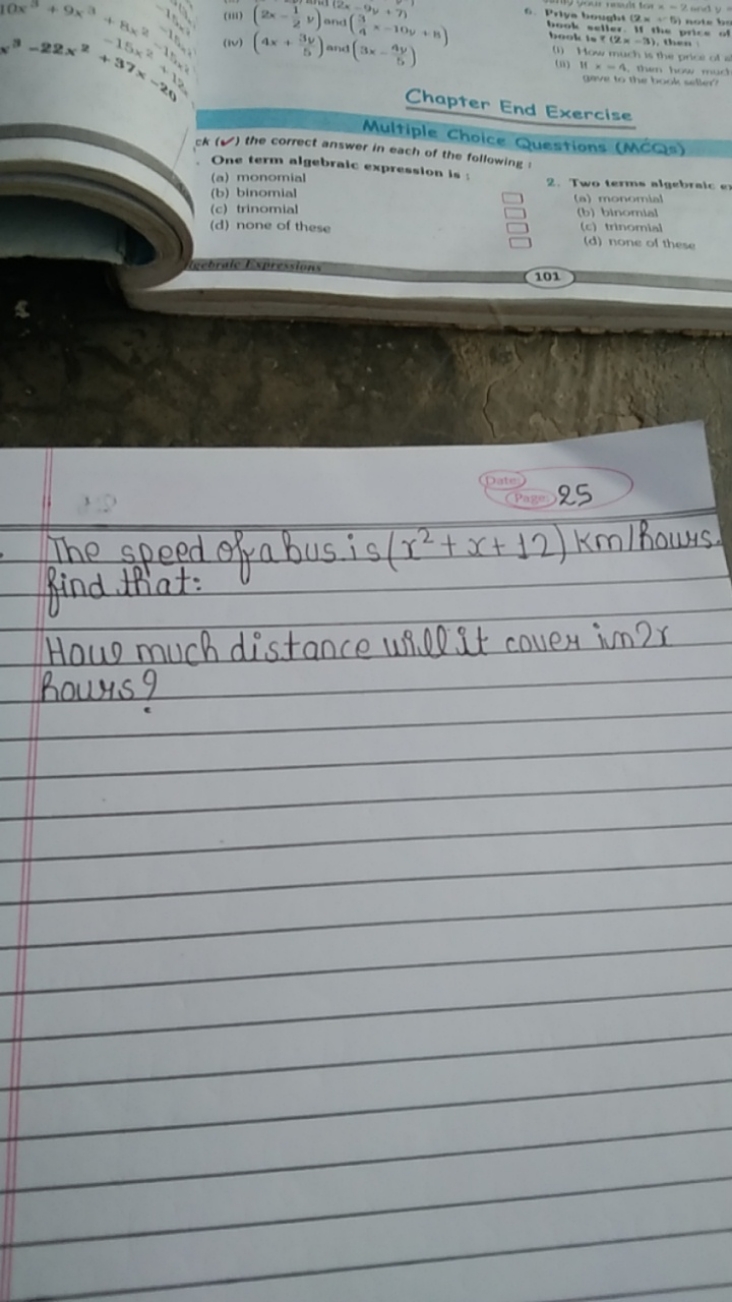 10x³ + 9x³ + 8x²
-15x²
-15x² + 12x
x³ -22x² + 37x -20
(iii) (2x - 1/2 y) and (3/4 x -10y + 8)
(iv) (4x + 3y/5) and (3x - 4y/5)
6. Priya bought (2x + 5) note
book seller. If the price of
book is ₹ (2x -3), then :
(i) How much is the price of
(ii) If x = 4, then how much
gave to the book seller?
Chapter End Exercise
Multiple Choice Questions (MCQs)
ck (✓) the correct answer in each of the following :
. One term algebraic expression is :
(a) monomial
(b) binomial
(c) trinomial
(d) none of these
2. Two terms algebraic
(a) monomial
(b) binomial
(c) trinomial
(d) none of these
gebraic Expressions
101
Date:
Page: 25
The speed of a bus is (x² + x + 12) km/hours.
find that:
How much distance will it cover in 2x
hours?